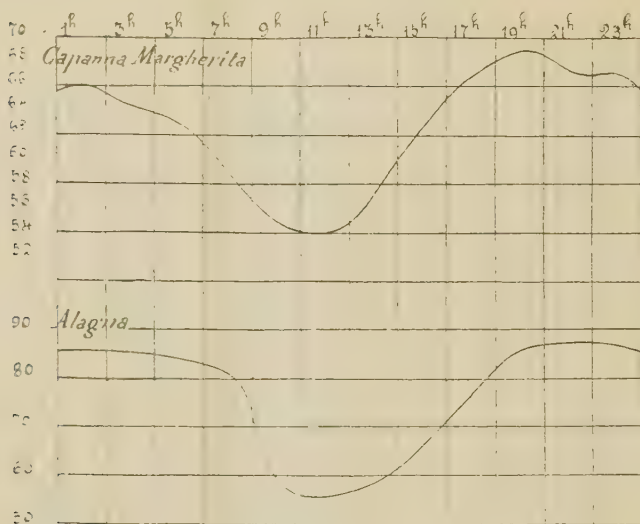 1h 3h 5h 7h 9h 11h 13h 15h 17h 19h 21h 23h
70
68
Capanna Margherita
66
64
62
60
58
56
54
52
90
Alagna
80
70
60
50